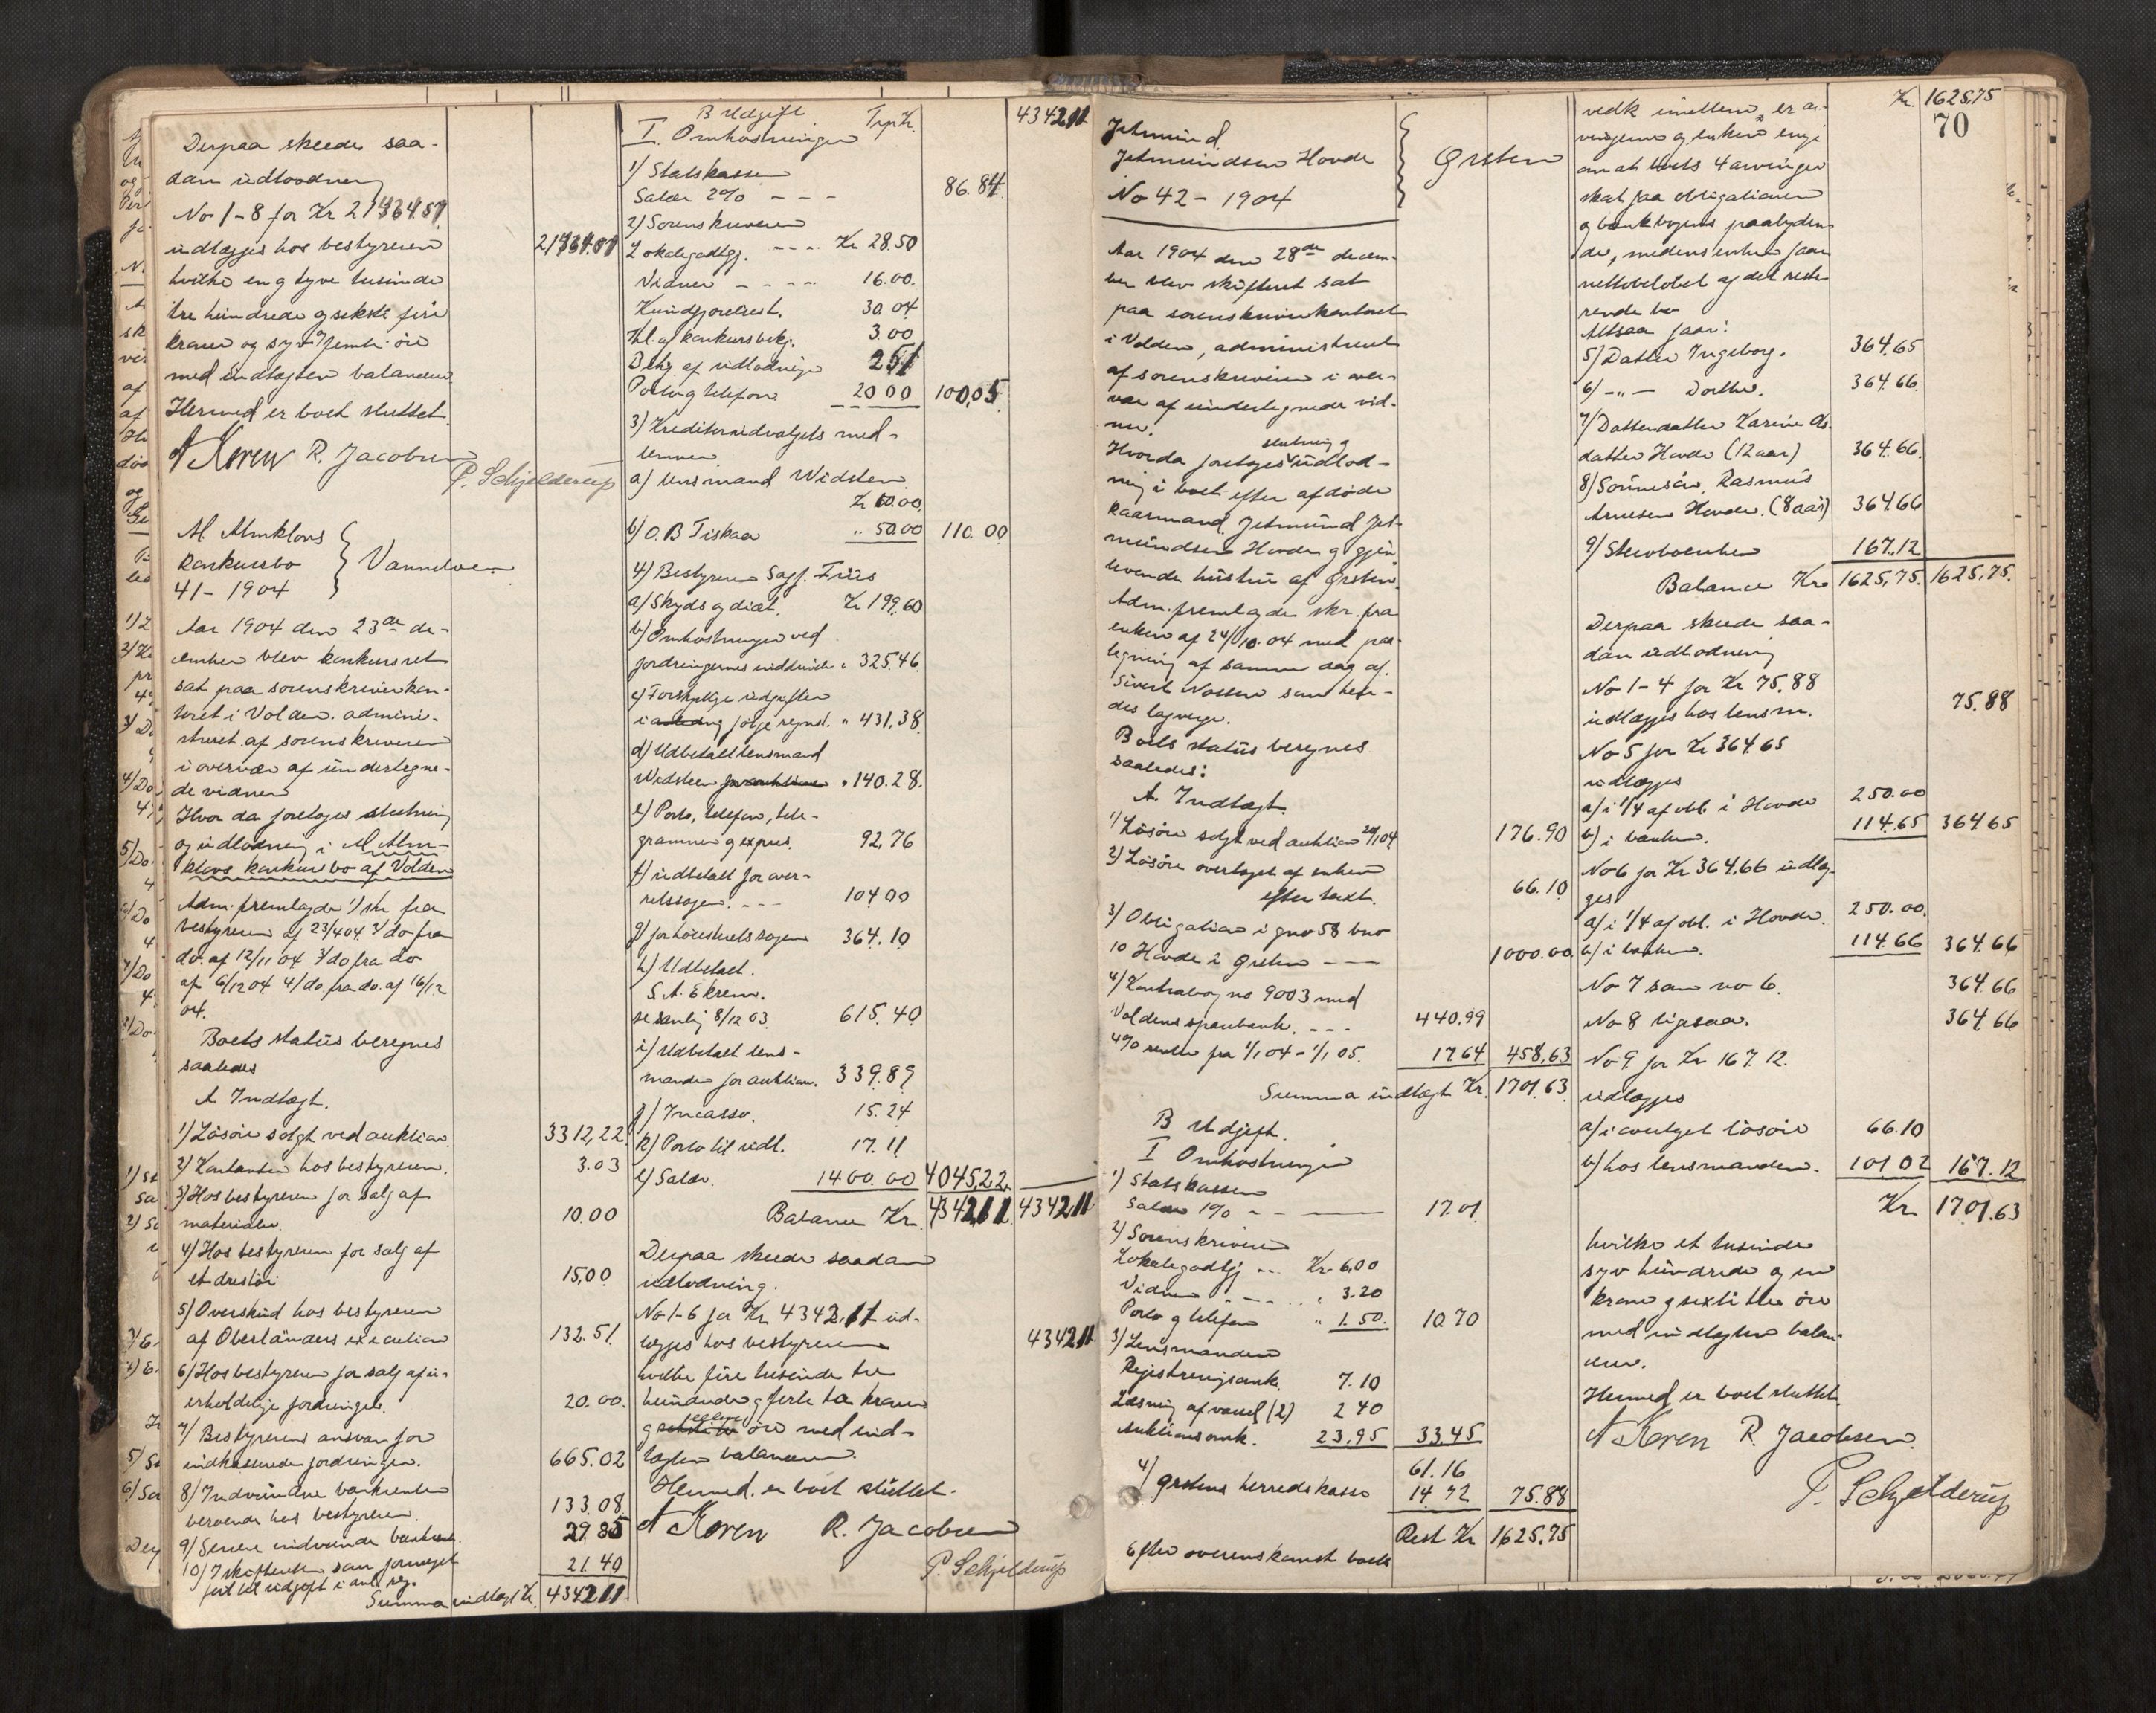 Derpaa skeede saa-
dan udlodning
No 1-8 for Kr 21364.57
udlægges hos bestyreren 21364.57
hvilke en og tyve tusinde
tre hundrede og seksti fire
kroner og syv og femti øre
med indtægten balancerer
Hermed er boet sluttet.
A Koren R. Jacobsen
P. Schjelderup
M. Almklovs
konkursbo
41-1904
Vannelven
Aar 1904 den 23de de-
cember blev konkursret
sat paa sorenskriverkon-
toret i Volden. admini-
streret af sorenskriveren
i overvær af undertegne-
de vidner
Hvor da foretoges slutning
og udlodning i M Alm-
klovs konkursbo af Volden
Adm. fremlagde 1/ skr fra
bestyreren af 23/4 04. 2/ do fra
do. af 12/11 04 3/ do fra do
af 6/12 04. 4/ do. fra do. af 16/12
04.
Boets status beregnes
saaledes
A Indtægt.
1) Løsøre solgt ved auktion. 3312,22
2) Kontanter hos bestyreren. 3.03
3) Hos bestyreren for salg af
materialer. 10.00
4) Hos bestyreren for salg af
et dreslør 15,00
5) Overskud hos bestyreren
af Oberlanders execution 132.51
6) Hos bestyreren for salg af u-
erholdelige fordringer. 20.00.
7) Bestyrerens ansvar for
indkasserede fordringer. 665.02
8) Indvundne bankrenter
beroende hos bestyreren. 133.08
9) Senere indvundne bankrent. 29.85
10) I skifteretten som formeget
ført til udgift i anl. reg. 21.40
Summa indtægt Kr. 4342 11
B Udgift Trp Kr. 4342 11
I. Omkostninger
1) Statskassen
Salær 2% - - - 86.84
2) Sorenskriveren
Lokalegodtgj. - - - Kr 28.50
Vidner - - - - 16.00.
Kundgjørelsest. 30.04
Kl. af konkursbekj. 3.00
Bekg af udlodninge 2 51
Porto og telefon 20 00 100,05
3) Kreditorudvalgets med-
lemmer
a) lensmand Widsten
Kr 60.00
b) O. B Fiskaa " 50.00 110.00
4) Bestyreren Sagf. Friis
a) Skyds og diæt. Kr 199.60
b) Omkostninger ved
fordringernes inddrivelse " 325.46
c) Forskjellige udgifter
i følge regnsk. " 431,38
d) Udbetalt lensmand
Widsteen " 140.28.
e) Porto, telefon, tele-
grammer og expres. 92,76
f) udbetalt for over-
retssagen. - - - 104 00
g) for høiesteretssagen 364.10
h) Udbetalt.
S. A. Ekrem.
se samling 8/12 03. 615.40
i) Udbetalt lens-
manden for auktion. 339.89
j) Incasso. 15.24
k) Porto til udl. 17.11
l) Salær. 1400.00 4045,22
Balance Kr. 4342,11 4342,11
Derpaa skeede saadan
udlodning.
No 1-6 for Kr 4342.11 ud-
lægges hos bestyreren 4342 11
hvilke fire tusinde tre
hundrede og førti to kroner
og elleve øre med ind-
tægten balancerer.
Hermed er boet sluttet.
A Koren R. Jacobsen
P. Schjelderup
Jetmund
Jetmundsen Hovde
No 42 - 1904
Ørsten
Aar 1904 den 28de decem-
ber blev skifteret sat
paa sorenskriverkontoret
i Volden, administreret
af sorenskriveren i over-
vær af undertegnede vid-
ner.
Hvorda foretoges slutning og udlod-
ning i boet efter afdøde
kaarmand Jetmund Jet-
mundsen Hovde og gjen-
levende hustru af Ørsten.
Adm. fremlagde skr. fra
enken af 24/10 04 med paa-
tegning af samme dag af
Sivert Nossen som hen-
des lagverge.
Boets status beregnes
saaledes:
A. Indtægt
1) Løsøre solgt ved auktion 20/1 04 176.90
2) Løsøre overtaget af enken
efter taxt. 66.10
3) Obligation i gno 58 bno
10 Hovde i Ørsten - - 1000.00
4) Kontrabog no 9003 med
Voldens sparebank. - - - 440.99
4% renter fra 1/1 04 - 1/1 05. 17 64 458,63
Summa indtægt Kr. 1701.63
B Udgift.
I Omkostninger
1) Statskassen
Salær 1% - - 17.01
2) Sorenskriveren
Lokalegodtgj. - - Kr 6,00
Vidner - - - " 3.20
Porto og telefon " 1.50. 10.70
3) Lensmanden
Registreringsomk. 7.10
Læsning af varsel (2) 2 40
Auktionsomk. 23,95 33.45
61.16
4) Ørstens herredskasse 14.72 75.88
Rest Kr 1625,75
Efter overenskomst boets
Kr. 1625,75
70
vedk imellem, er ar-
vingerne og enken enige
om at boets 4 arvinger
skal faa obligationen
og bankbogens paalyden-
de, medens enken faar
nettobeløbet af det reste-
rende bo
Altsaa faar:
5) Datter Ingeborg. 364.65
6) -„- Dorthe. 364.66.
7) Datterdatter Karine As-
datter Hovde (12 aar) 364.66.
8) Sønnesøn, Rasmus
Arnesen Hovde. (8 aar) 364.66
9) Stervboenken 167.12
Balance Kr. 1625,75. 1625,75.
Derpaa skeede saa-
dan udlodning
No 1-4 for Kr 75.88
udlægges hos lensm. 75.88
No 5 for Kr 364.65
udlægges
a) i 1/4 af obl. i Hovde 250.00
b) i banken. 114.65 364 65
No 6 for Kr 364.66 udlæg-
ges
a) i 1/4 af obl. i Hovde. 250.00.
b) i banken. 114.66 364.66
No 7 som no 6. 364.66
No 8 ligesaa. 364.66
No 9 for Kr 167.12.
udlægges
a) i overtaget løsøre 66.10
b) hos lensmanden. 101 02 167.12
Kr 1701.63
hvilke et tusinde
syv hundrede og en
krone og sexti tre øre
med indtægten balan-
cerer.
Hermed er boet sluttet.
A Koren R. Jacobsen.
P. Schjelderup